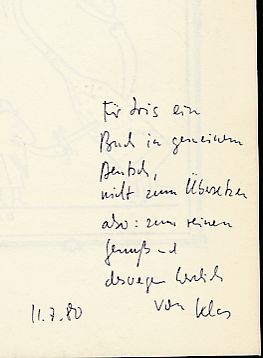 Für Iris ein
Buch in gemeinem
Deutsch,
nicht zum Übersetzen
also: zum reinen
Genuß und
deswegen herzlich
von Klas
11.7.80